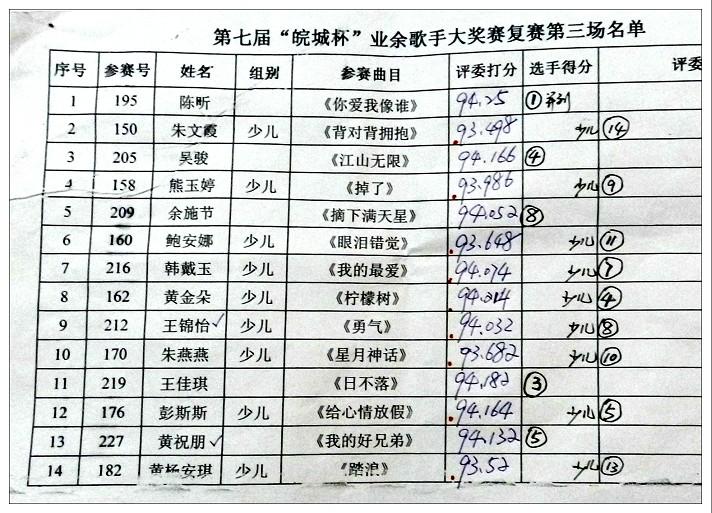 第七届“皖城杯”业余歌手大奖赛复赛第三场名单
序号 参赛号 姓名 组别 参赛曲目 评委打分 选手得分 评委
1 195 陈昕 《你爱我像谁》 94.25 ①
2 150 朱文霞 少儿 《背对背拥抱》 93.498 少儿⑭
3 205 吴骏 《江山无限》 94.166 ④
4 158 熊玉婷 少儿 《掉了》 93.986 少儿⑨
5 209 余施节 《摘下满天星》 94.052 ⑧
6 160 鲍安娜 少儿 《眼泪错觉》 93.648 少儿⑪
7 216 韩戴玉 少儿 《我的最爱》 94.074 少儿⑦
8 162 黄金朵 少儿 《柠檬树》 少儿④
9 212 王锦怡✓ 少儿 《勇气》 94.032 少儿⑧
10 170 朱燕燕 少儿 《星月神话》 93.682 少儿⑩
11 219 王佳琪 《日不落》 94.182 ③
12 176 彭斯斯 少儿 《给心情放假》 94.164 少儿⑤
13 227 黄祝朋✓ 《我的好兄弟》 94.132 ⑤
14 182 黄杨安琪 少儿 《踏浪》 93.52 少儿⑬